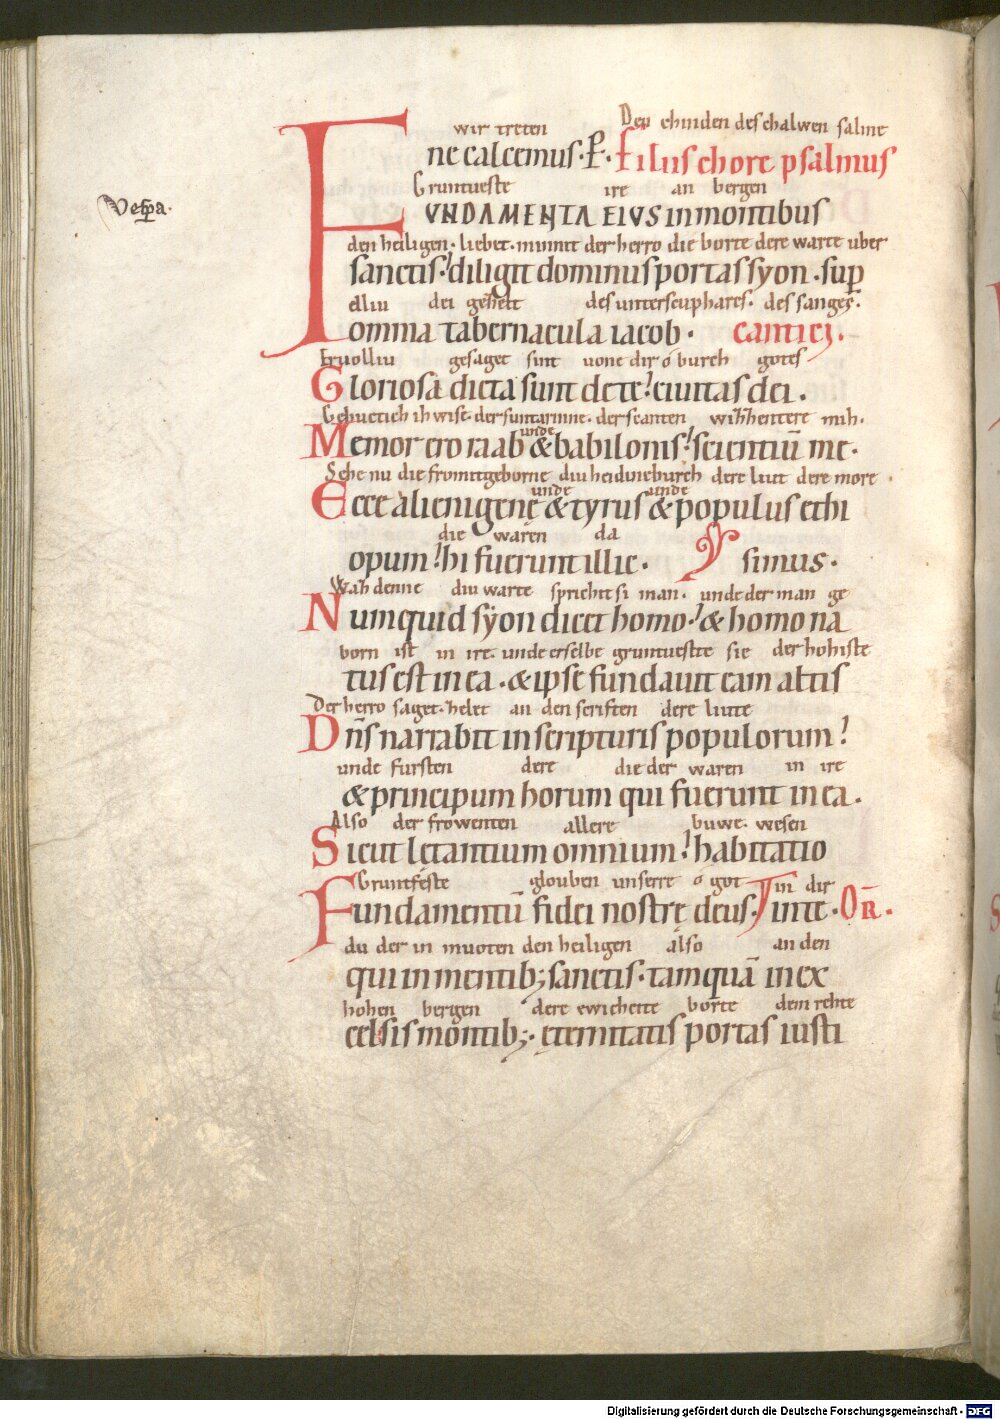 wir treten Den chinden des chalwen salme
ne calcemus · P · Filiis chore psalmus
Gruntueste ire an bergen
FUNDAMENTA EIUS in montibus
Vespa.
den heiligen · liebet · minnit der herro die borte dere warte uber
sanctis · diligit dominus portas syon · sup
elliu dei gehelt des untersciphares · des sanges ·
omnia tabernacula iacob · cantici ·
Eruolliu gesaget sint uone dir o burch gotes
Gloriosa dicta sunt de te · ciuitas dei ·
Gehuctich ih wise · der suntarinne · der scanten wizzentere mih ·
unde
Memor ero raab & babilonis · scientiū me ·
Sehe nu die fromitgeborne diu heidineburch dere liut dere more
unde unde
Ecce alienigenę & tyrus & populus ethi
die waren da
opum · hi fuerunt illic · simus ·
Wah denne diu warte sprichit si man · unde der man ge
Numquid syon dicet homo · & homo na
born ist in ire · unde er selbe gruntueste sie der hohiste
tus est in ea · & ipse fundauit eam altis
Der herro saget · helet an den scriften dere liute
Dn̄s narrabit in scripturis populorum
unde fursten dere die der waren in ire
& principum horum qui fuerunt in ea ·
Also der frowenten allere buwe · wesen
Sicut lętantium omnium · habitatio
Gruntfeste glouben unserre o got in dir
Fundamentū fidei nostrę deus · in te · OR̄ ·
du der in muoten den heiligen also an den
qui in mentib; sanctis · tamquā in ex
hohen bergen dere ewicheite borte dem rehte
celsis montib; · ęternitatis portas iusti
Digitalisierung gefördert durch die Deutsche Forschungsgemeinschaft - DFG